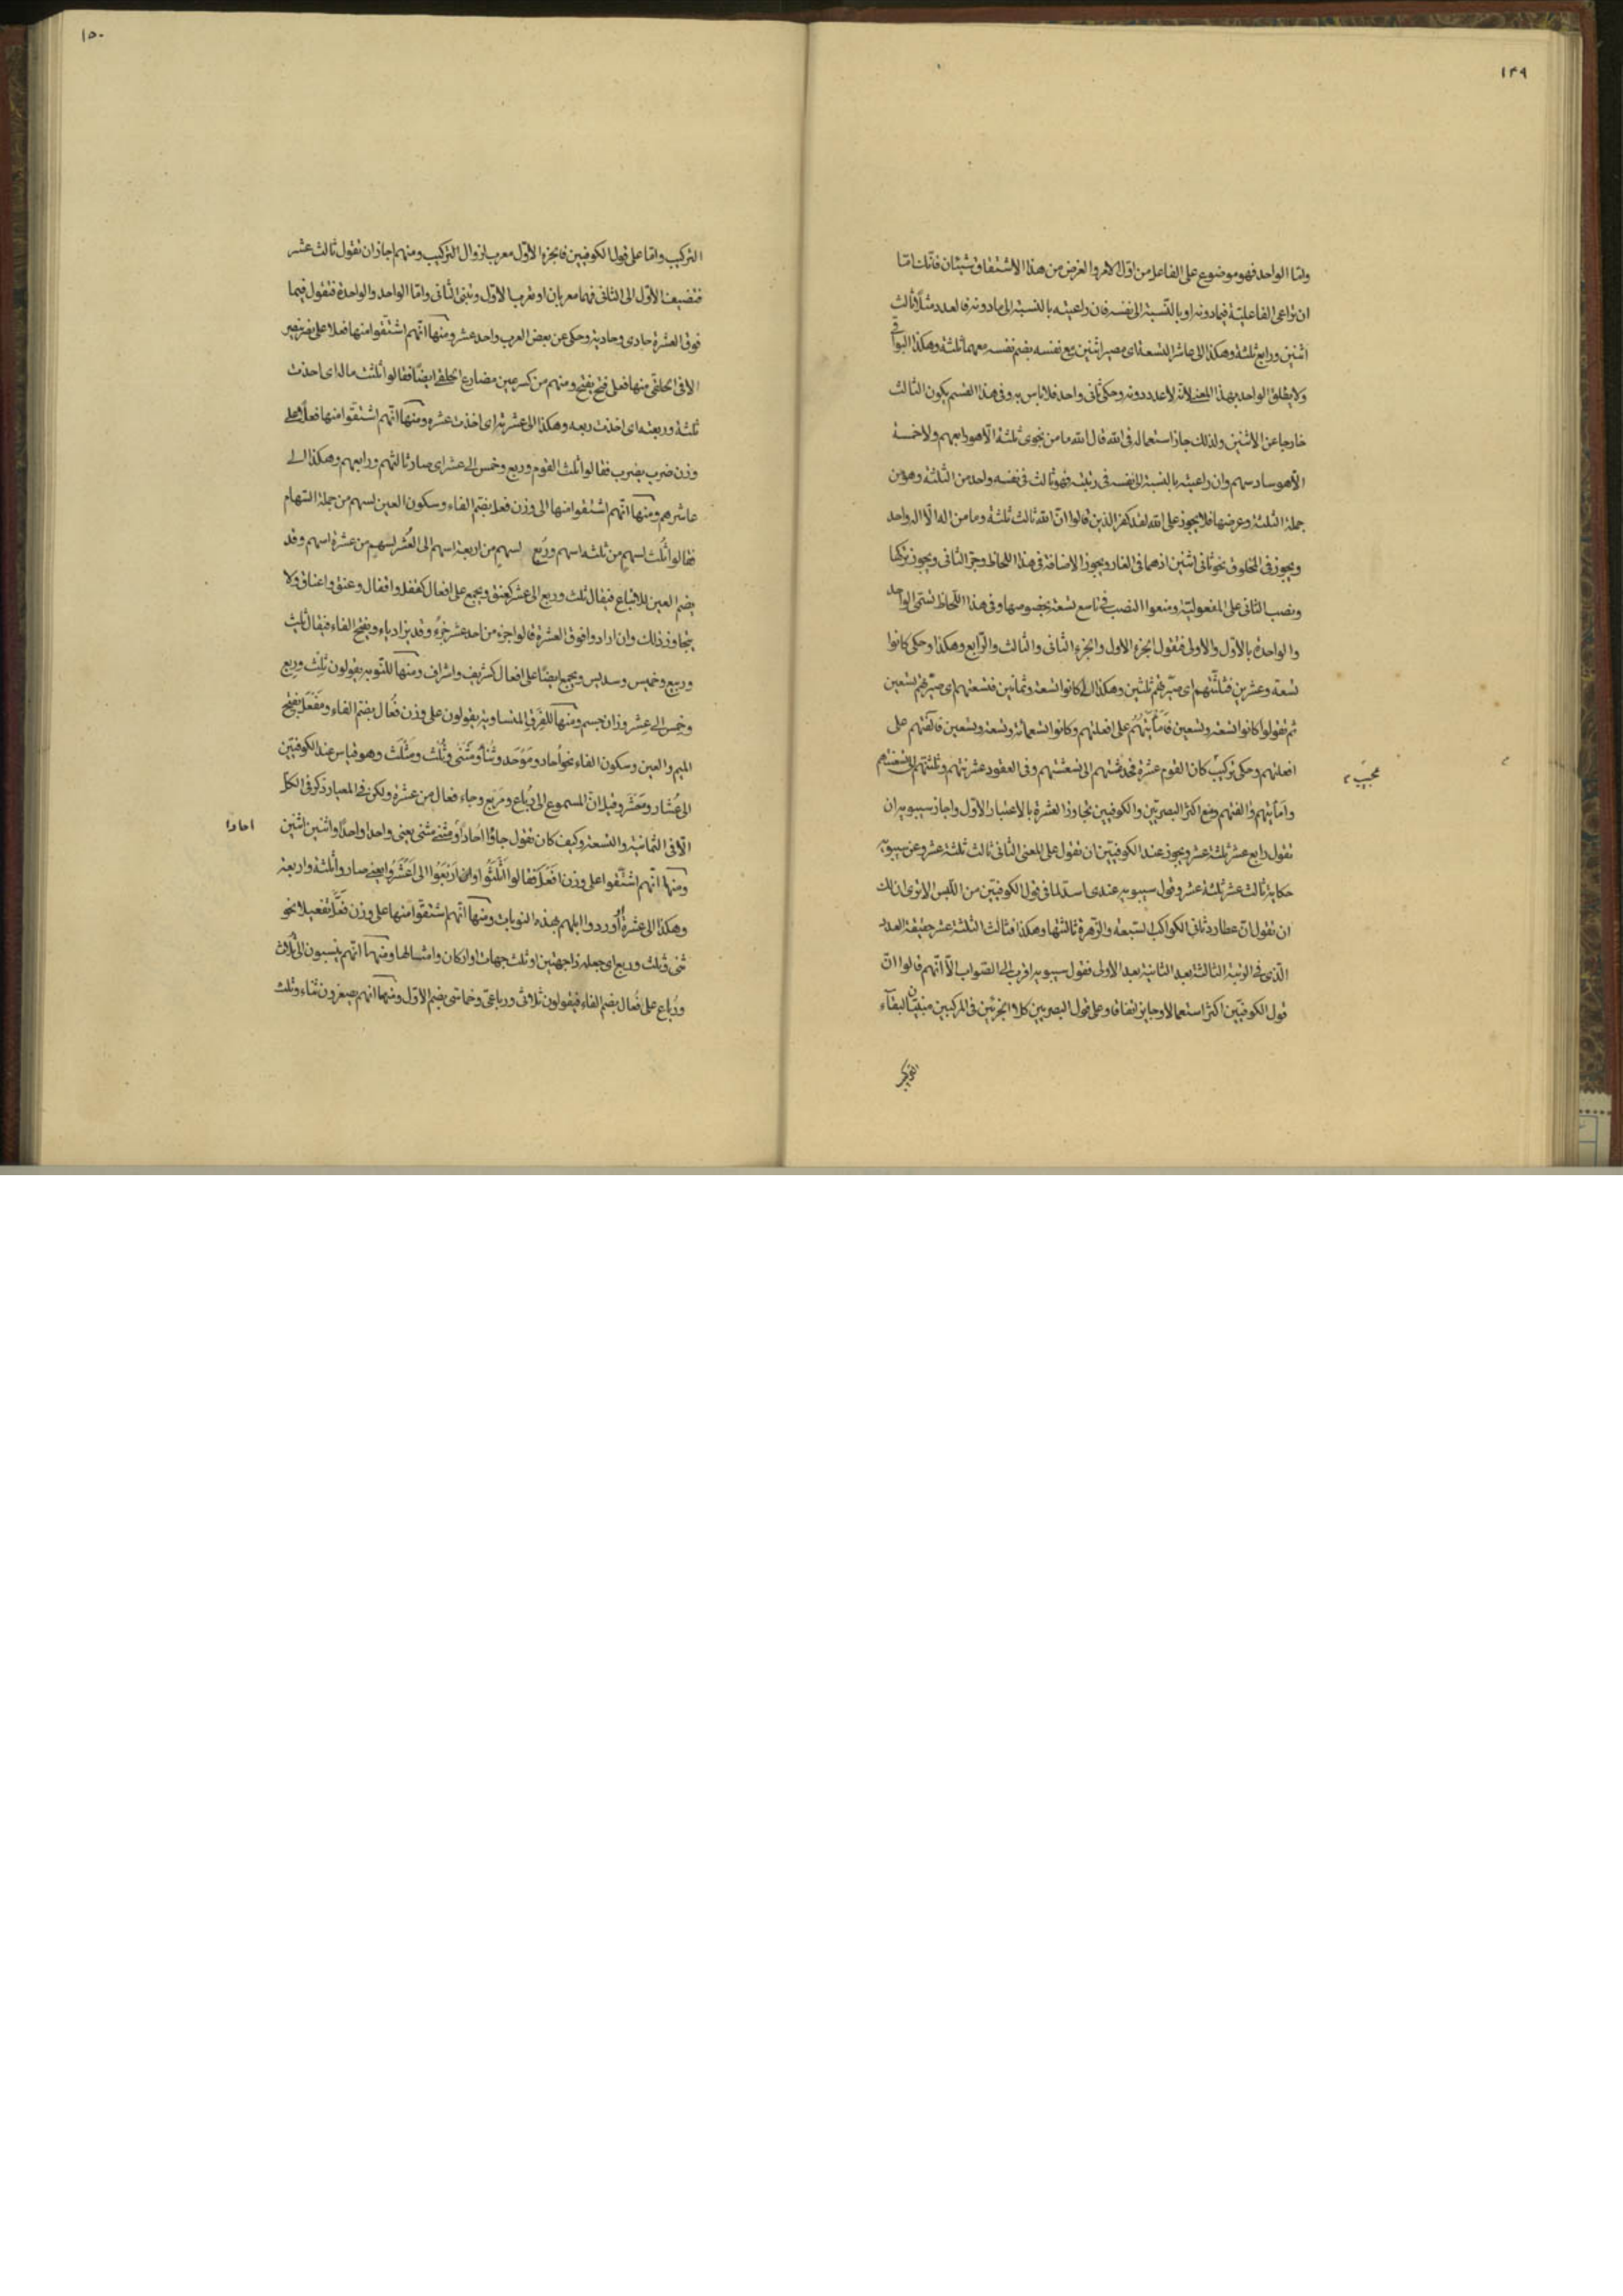 ١٤٩
واما الواحد فهو موضوع على الفاعل من اول الامر والغرض من هذا الاشتقاق شيئان فانك اما
ان تراعى الفاعلية فيما دونه او بالنسبة الى نفسه فان راعيته بالنسبة الى ما دونه فالعدد مثلا ثالث
اثنين ورابع ثلثة وهكذا الى عاشر التسعة اى مصير اثنين مع نفسه بضم نفسه معهما ثلثة وهكذا البواقى
ولا يطلق الواحد بهذا المعنى لانه لا عدد دونه وحكى ثانى واحد فلا باس به وفى هذا القسم يكون الثالث
خارجا عن الاثنين ولذلك جاز استعماله فى الله قال الله ما من نجوى ثلثة الا هو رابعهم ولا خمسة
الا هو سادسهم وان راعيته بالنسبة الى نفسه فى رتبته فهو ثالث فى نفسه واحد من الثلثة وهو من
جملة الثلثة وعرضها فلا يجوز على الله لقد كفر الذين قالوا ان الله ثالث ثلثة وما من اله الا اله واحد
ويجوز فى المخلوق نحو ثانى اثنين اذ هما فى الغار ويجوز الاضافة فى هذا اللحاظ وجر الثانى ويجوز تركها
ونصب الثانى على المفعولية ومنعوا النصب فى تاسع تسعة بخصوصها وفى هذا اللحاظ تسمى الواحد
والواحدة بالاول والاولى فتقول الجزء الاول والجزء الثانى والثالث والرابع وهكذا وحكى كانوا
تسعة وعشرين فثلثتهم اى صيرتهم ثلثين وهكذا الى كانوا تسعة وثمانين فتسعنتهم اى صيرتهم تسعين
ثم تقولوا كانوا تسعة وتسعين فامأيتهم على افعلتهم وكانوا تسعمائة وتسعة وتسعين فآلفتهم على
افعلتهم وحكى تركيب كان القوم عشرة فحدعشتهم الى تسعشتهم وفى العقود عشرنتهم وثلثنتهم الى تسعنتهم
عجيب
وامأيتهم والفتهم ومنع اكثر البصريين والكوفيين تجاوز العشرة بالاعتبار الاول واجاز سيبويه ان
تقول رابع عشر ثلثة عشر ويجوز عند الكوفيين ان تقول على المعنى الثانى ثالث ثلثة عشر وعن سيبويه
حكاية ثالث عشر ثلثة عشر وقول سيبويه عندى اسد لما فى قول الكوفيين من اللبس الا ترى انك
ان تقول ان عطارد ثانى الكواكب السبعة والزهرة ثالثتها وهكذا فثالث الثلثة عشر حقيقة العدد
الذى فى الرتبة الثالثة بعد الثانية بعد الاولى فقول سيبويه اقرب الى الصواب الا انهم قالوا ان
قول الكوفيين اكثر استعمالا وجايز اتفاقا وعلى قول البصريين كلا الجزئين فى المركبين مبنيان لبقاء
التركيب
١٥٠
التركيب واما على قول الكوفيين فالجزء الاول معرب لزوال التركيب ومنهم اجاز ان تقول ثالث عشر
فتضيف الاول الى الثانى فهما معربان او تعرب الاول وتبنى الثانى واما الواحد والواحدة فتقول فيما
فوق العشرة حادى وحادية وحكى عن بعض العرب واحد عشر ومنها انهم اشتقوا منها فعلا على نصر ينصر
الا فى الحلقى منها فعلى فتح يفتح ومنهم من كسر عين مضارع الحلقى ايضا فقالوا ثلثت ماله اى اخذت
ثلثه وربعته اى اخذت ربعه وهكذا الى عشرته اى اخذت عشره ومنها انهم اشتقوا منها فعلا على
وزن ضرب يضرب فقالوا ثلث القوم وربع وخمس الى عشر اى صار ثالثهم ورابعهم وهكذا الى
عاشرهم ومنها انهم اشتقوا منها الى وزن فعل بضم الفاء وسكون العين لسهم من جملة السهام
فقالوا ثُلث لسهم من ثلثة اسهم ورُبع لسهم من اربعة اسهم الى العُشر لسهم من عشرة اسهم وقد
يضم العين للاتباع فيقال ثلث وربع الى عشر كعنق ويجمع على افعال كقفل واقفال وعنق واعناق ولا
يتجاوز ذلك وان ارادوا فوق العشرة قالوا جزء من احد عشر جزءً وقد يزاد ياء ويفتح الفاء فيقال ثليث
وربيع وخميس وسديس ويجمع ايضا على افعال كشريف واشراف ومنها للنوبة يقولون ثِلث ورِبع
وخِمس الى عِشر وزان جسم ومنها للفرق المتساوية يقولون على وزن فُعال بضم الفاء ومَفعَل بفتح
الميم والعين وسكون الفاء نحو اُحاد ومَوحَد وثُناء ومَثنى وثُلث ومَثلث وهو قياس عند الكوفيين
الى عُشار ومَعشر وقيل ان المسموع الى رُباع ومَربع وجاء فعال من عشرة ولكن فى المعيار ذكر فى الكل
الا فى الثمانية والتسعة وكيف كان تقول جاؤا اُحاد او مثنى مثنى يعنى واحدا واحدا واثنين اثنين
احادا
ومنها انهم اشتقوا على وزن افعل فقالوا اثلثوا او اربعوا الى اعشروا يعنى صاروا ثلثة واربعة
وهكذا الى عشرة او اوردوا ابلهم بهذه النوبات ومنها انهم اشتقوا منها على وزن فعّل تفعيلا نحو
ثنى وثلث وربع اى جعله ذا جهتين او ثلث جهات او اركان وامثالها ومنها انهم ينسبون الى ثلاث
ورُباع على فُعال بضم الفاء فيقولون ثلاثى ورباعى وخماسى بضم الاول ومنها انهم يصغرون ثناء وثلث